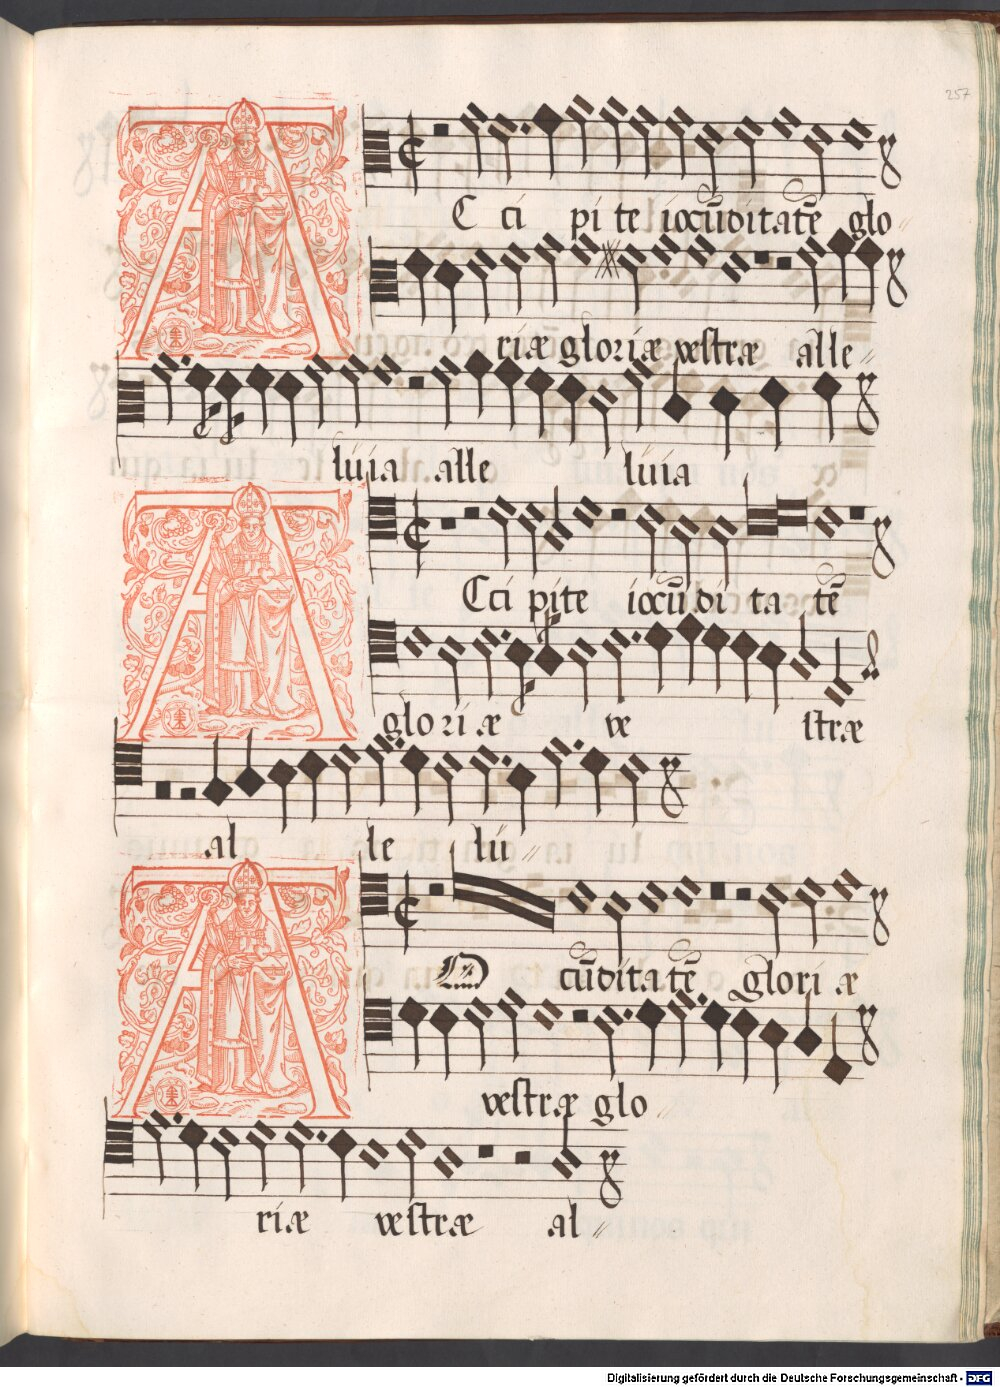 257
C ci pi te iocūditatē glo
riæ gloriæ vestræ alle
luia alle luia
Cci pite iocūdi ta tē
gloriæ ve stræ
al le lu
cūditatē gloriæ
vestræ glo
riæ vestræ al
Digitalisierung gefördert durch die Deutsche Forschungsgemeinschaft - DFG